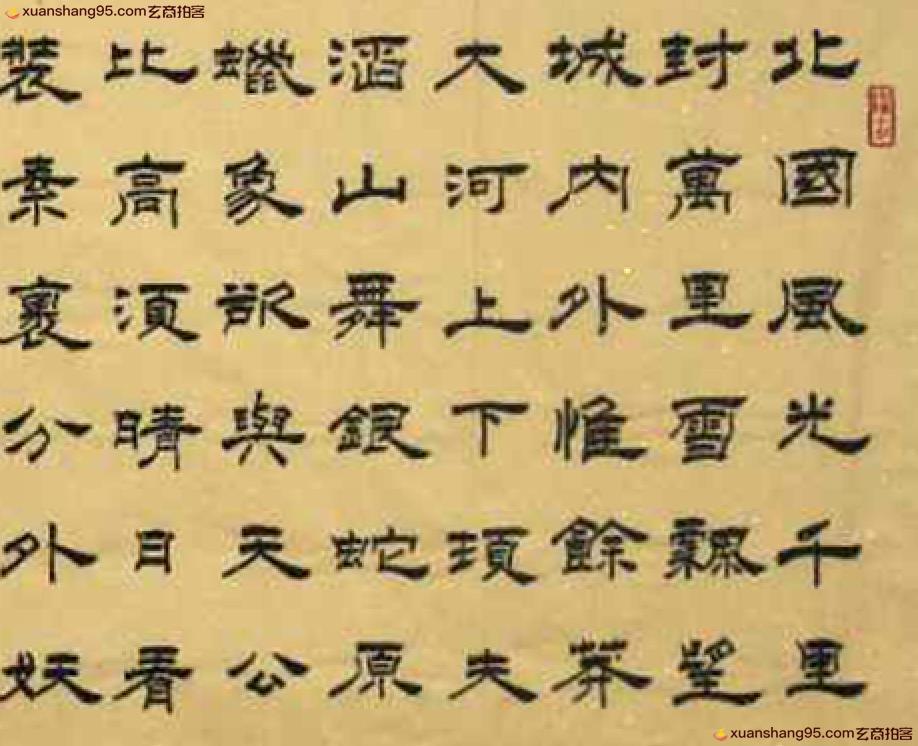 xuanshang95.com玄商拍客
北國風光千里
封萬里雪飄望
城内外惟餘莽
大河上下頓失
滔山舞銀蛇原
蠟象欲與天公
比高須晴日看
裝素裹分外妖
xuanshang95.com玄商拍客